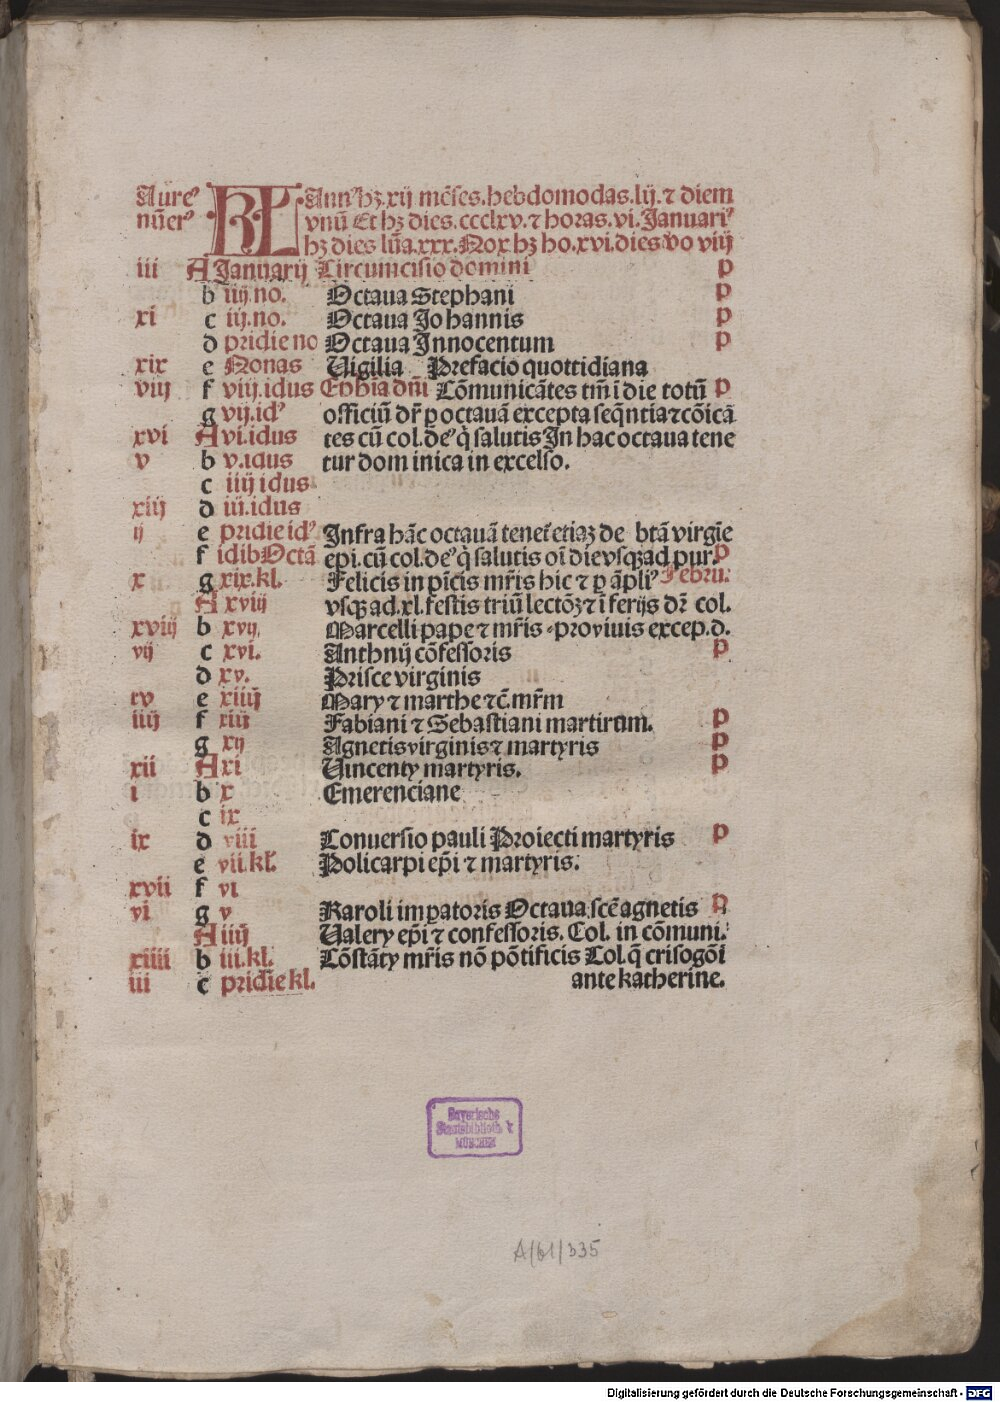 Aureꝰ KL Annꝰ hꝫ .xij mēses. hebdomodas. lij. ⁊ diem
nūerꝰ vnū Et hꝫ dies. ccclxv. ⁊ horas. vi. Januariꝰ
hꝫ dies lūa. xxx. Nox hꝫ ho. xvi. dies vo viij
iii A Januarij Circumcisio domini p
b iiij. no. Octaua Stephani p
xi c iij. no. Octaua Johannis p
d pridie no Octaua Innocentum p
xix e Nonas Uigilia Prefacio quottidiana
viij f viij. idus Ephia dn̄i Cōmunicātes tm̄ ī die totū p
g vij. idꝰ officiū dr̄ ꝑ octauā excepta seq̄ntia ⁊ cōicā
xvi A vi. idus tes cū col. deꝰ q̄ salutis In hac octaua tene
v b v. idus tur dom inica in excelso.
c iiij idus
xiij d iij. idus
ij e pridie idꝰ Infra hāc octauā tenet̄ etiaꝫ de btā virgīe
f idib Octā epi. cū col. deꝰ q̄ salutis oī die vsqꝫ ad pur. p
x g xix. kl. Felicis in pīcis mr̄is hic ⁊ ꝑ āpliꝰ Febru.
A xviij vsqꝫ ad. xl. festis triū lectōꝫ ⁊ ī ferijs dr̄ col.
xviij b xvij. Marcelli pape ⁊ mr̄is - pro viuis excep. d.
vij c xvi. Anthnij cōfessoris p
d xv. Prisce virginis
xv e xiiij Mary ⁊ marthe ⁊c̄. mr̄m
iiij f xiij Fabiani ⁊ Sebastiani martirum. p
g xij Agnetis virginis ⁊ martyris p
xii A xi Uincenty martyris. p
i b x Emerenciane
c ix
ix d viii Conuersio pauli Proiecti martyris p
e vii. kl. Policarpi ep̄i ⁊ martyris.
xvii f vi
vi g v Karoli imꝑatoris Octaua scē agnetis p
A iiij Ualery ep̄i ⁊ confessoris. Col. in cōmuni.
xiiii b iii. kl. Cōstāty mr̄is nō pōtificis Col. q̄ crisogōī
iii c pridie kl. ante katherine.
Bayerische
Staatsbibliothek
MÜNCHEN
A/61/335
Digitalisierung gefördert durch die Deutsche Forschungsgemeinschaft - DFG